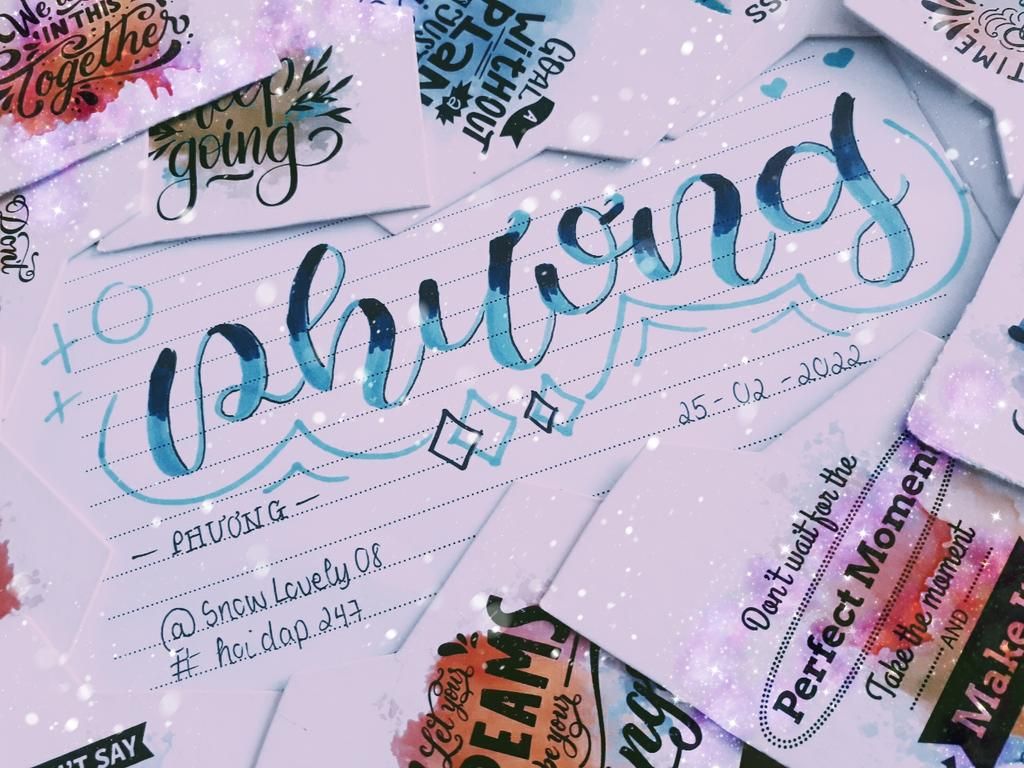 We
IN THIS
Together
keep
going
GOAL
A
WITHOUT
PLAN
a
JUST
TIME
Dont
phương
25-02-2022
— PHƯƠNG —
@ Snow Lovely 08
# hoi dap 247
Don't wait for the
Perfect Moment
Take the moment
AND
Make it
Let your
DREAMS
be your
N'T SAY